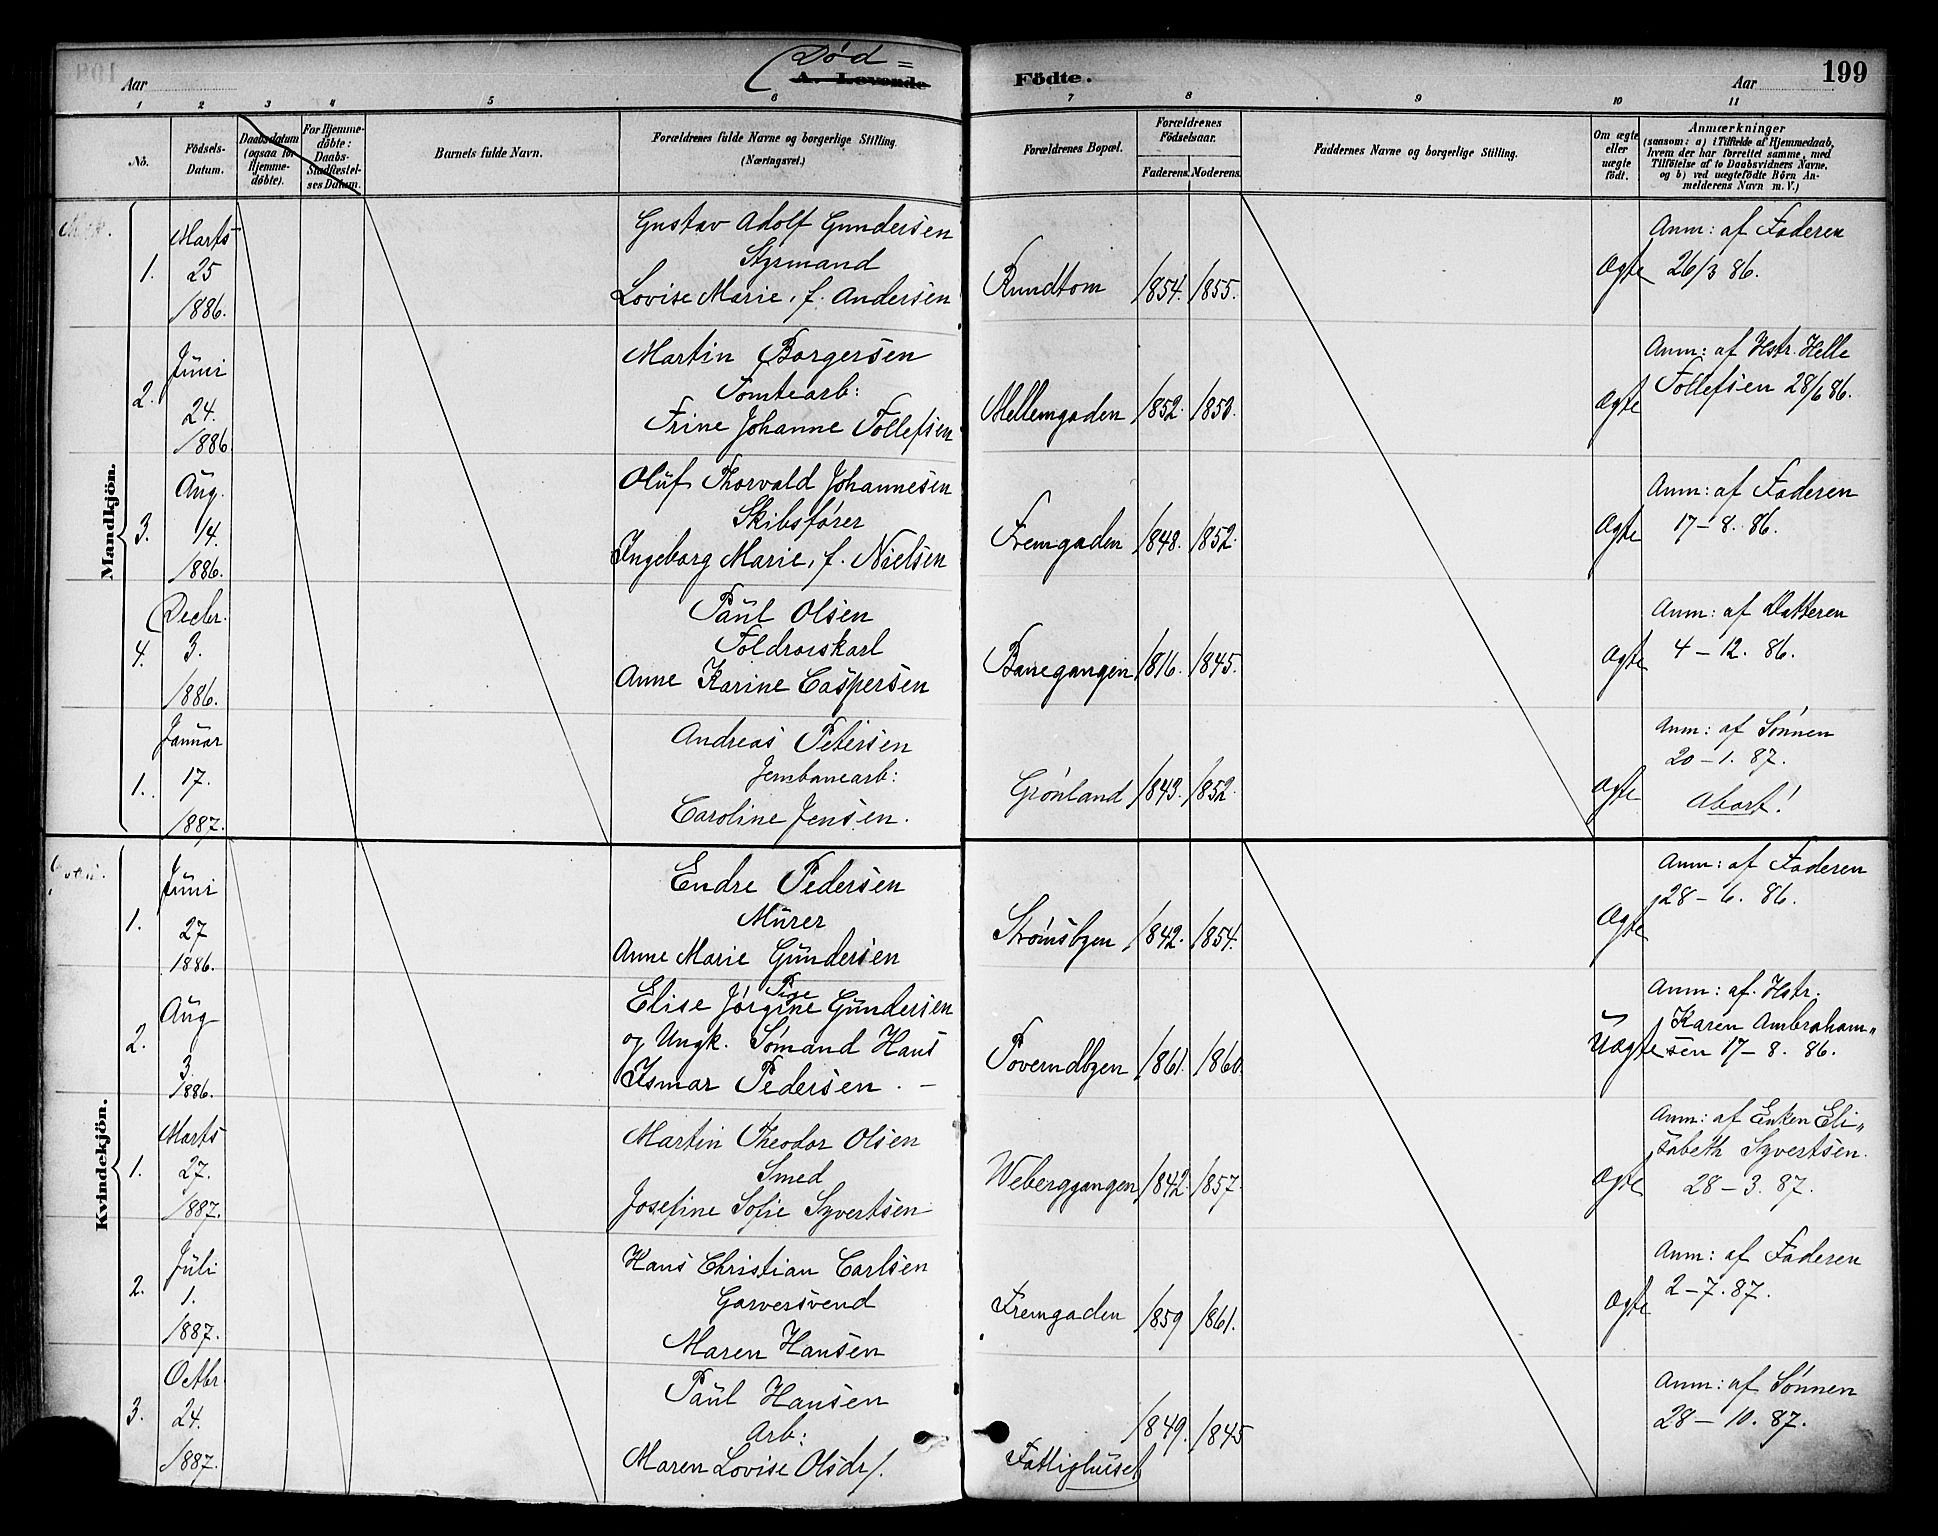 Død =
A. Levende Födte.
199
Aar
Aar
1 2 3 4 5 6 7 8 9 10 11
No.
Födsels-Datum.
Daabsdatum (ogsaa for Hjemme-döbte).
For Hjemme-döbte: Daabs-Stadfæstel-ses Datum.
Barnets fulde Navn.
Forældrenes fulde Navne og borgerlige Stilling. (Næringsvei.)
Forældrenes Bopæl.
Forældrenes Födselsaar.
Faderens. Moderens.
Faddernes Navne og borgerlige Stilling.
Om ægte eller uægte födt.
Anmærkninger
(saasom: a) i Tilfælde af Hjemmedaab, hvem der har forrettet samme, med Tilföielse af to Daabsvidners Navne, og b) ved uægtefödte Börn An-melderens Navn m. V.)
Mandkjön.
1. Marts 25 1886.
Gustav Adolf Gundersen
Styrmand
Lovise Marie, f. Andersen
Rundtom 1854. 1855. Ægte
Anm: af Faderen
26/3 86.
2. Juni 24. 1886
Martin Borgersen
Tomtearb:
Trine Johanne Tollefsen
Mellemgaden 1852. 1850. Ægte
Anm: af Hstr. Helle
Tollefsen 28/6 86.
3. Aug. 14. 1886.
Oluf Thorvald Johannesen
Skibsfører
Ingeborg Marie, f. Nielsen
Fremgaden 1848. 1852. Ægte
Anm: af Faderen
17-8. 86.
4. Decbr. 3. 1886.
Paul Olsen
Toldrorskarl
Anne Karine Caspersen
Banegangen 1816. 1845. Ægte
Anm: af Datteren
4-12. 86.
1. Januar 17. 1887.
Andreas Petersen
Jernbanearb:
Caroline Jensen.
Grønland 1843. 1852. Ægte
Anm: af Sønnen
20-1. 87.
Abort!
Kvindekjön.
1. Juni 27 1886.
Endre Pedersen
Murer
Anne Marie Gundersen
Strømsbyen 1842. 1854. Ægte
Anm: af Faderen
28-6. 86.
2. Aug 3. 1886.
Pige
Elise Jørgine Gundersen
og Ungk. Sømand Hans
Ismar Pedersen. -
1861. 1860. Uægte
Anm: af. Hstr.
Karen Ambraham„
sen 17-8. 86.
1. Marts 27. 1887.
Martin Theodor Olsen
Smed
Josefine Sofie Syvertsen
Weberggangen 1842. 1857. Ægte
Anm: af Enken Eli„
sabeth Syvertsen.
28-3. 87.
2. Juli 1. 1887.
Hans Christian Carlsen
Garversvend
Maren Hansen
Fremgaden 1859 1861. Ægte
Anm: af Faderen
2-7. 87.
3. Octbr 24. 1887.
Paul Hansen
Arb:
Maren Lovise Olsdr/.
Fattighuset 1849. 1845
Anm: af Sønnen
28-10. 87.